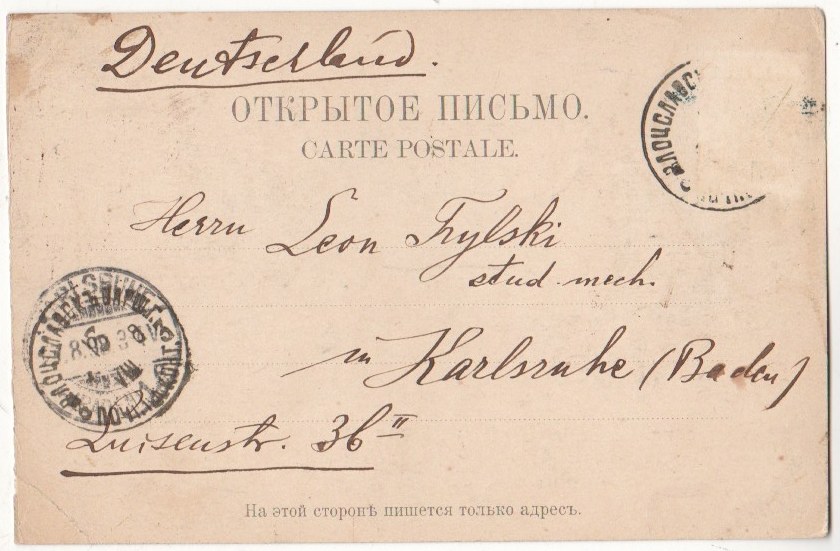 Deutschland.
ОТКРЫТОЕ ПИСЬМО.
CARTE POSTALE.
Herrn Leon Trylski
stud. mech.
in Karlsruhe (Baden)
Luisenstr. 36 II
На этой сторонѣ пишется только адресъ.